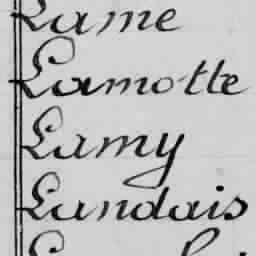 Lame
Lamotte
Lamy
Landais